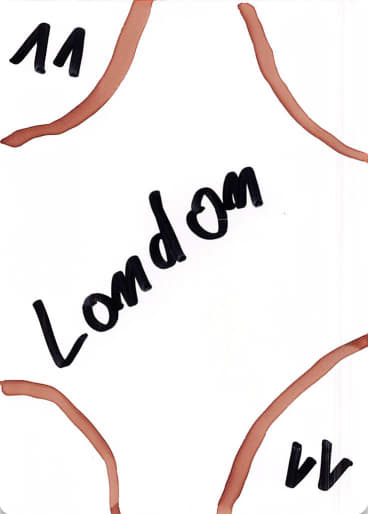 11
London
11